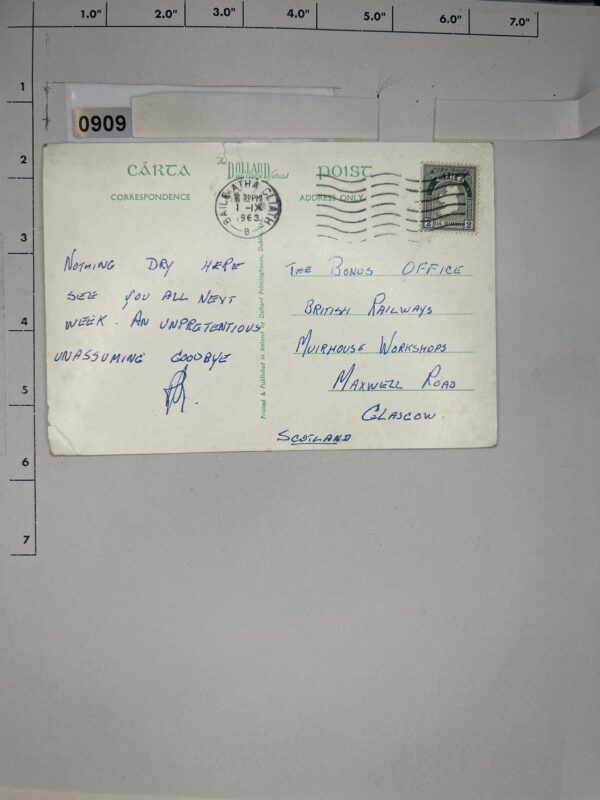 1.0" 2.0" 3.0" 4.0" 5.0" 6.0" 7.0"
1
2
3
4
5
6
7
0909
CÁRTA
The DOLLARD Series
POIST
CORRESPONDENCE
ADDRESS ONLY
BAILE ÁTHA CLIATH
1 -IX
1963
B
2 2
NOTHING DRY HERE
SEE YOU ALL NEXT
WEEK. AN UNPRETENTIOUS
UNASSUMING GOODBYE
Printed & Published in Ireland by Dollard Printinghouse, Dublin
THE BONUS OFFICE
BRITISH RAILWAYS
MUIRHOUSE WORKSHOPS
MAXWELL ROAD
GLASGOW.
SCOTLAND